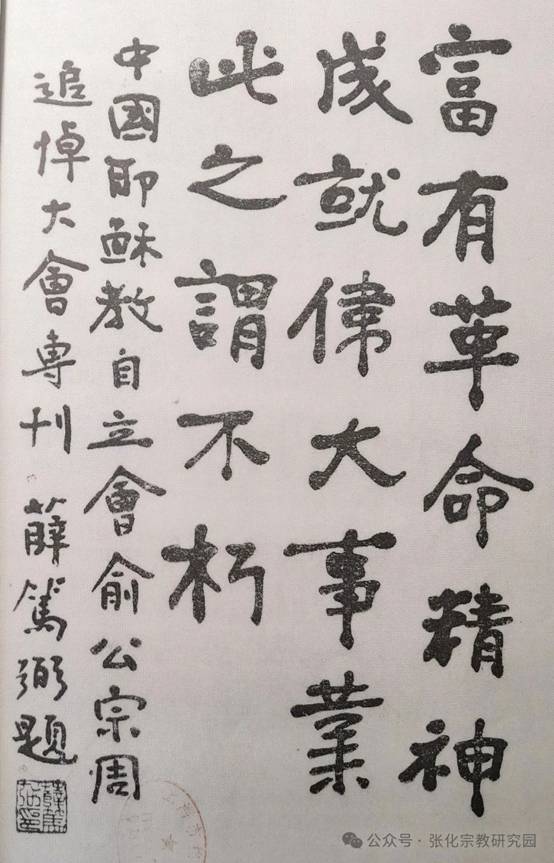 富有革命精神
成就偉大事業
此之謂不朽
中國耶穌教自立會俞公宗周
追悼大會專刊 薛篤弼題
公众号·张化宗教研究园